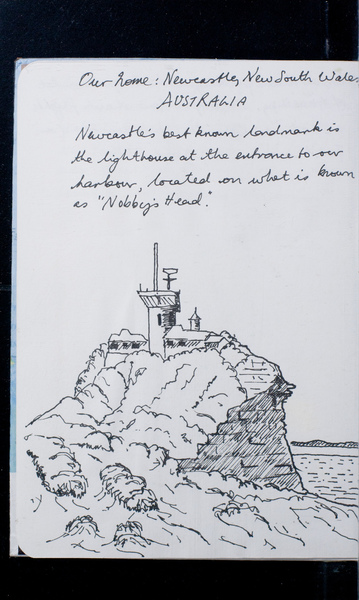 Our home: Newcastle, New South Wales
AUSTRALIA
Newcastle's best known landmark is
the lighthouse at the entrance to our
harbour, located on what is known
as "Nobby's Head".